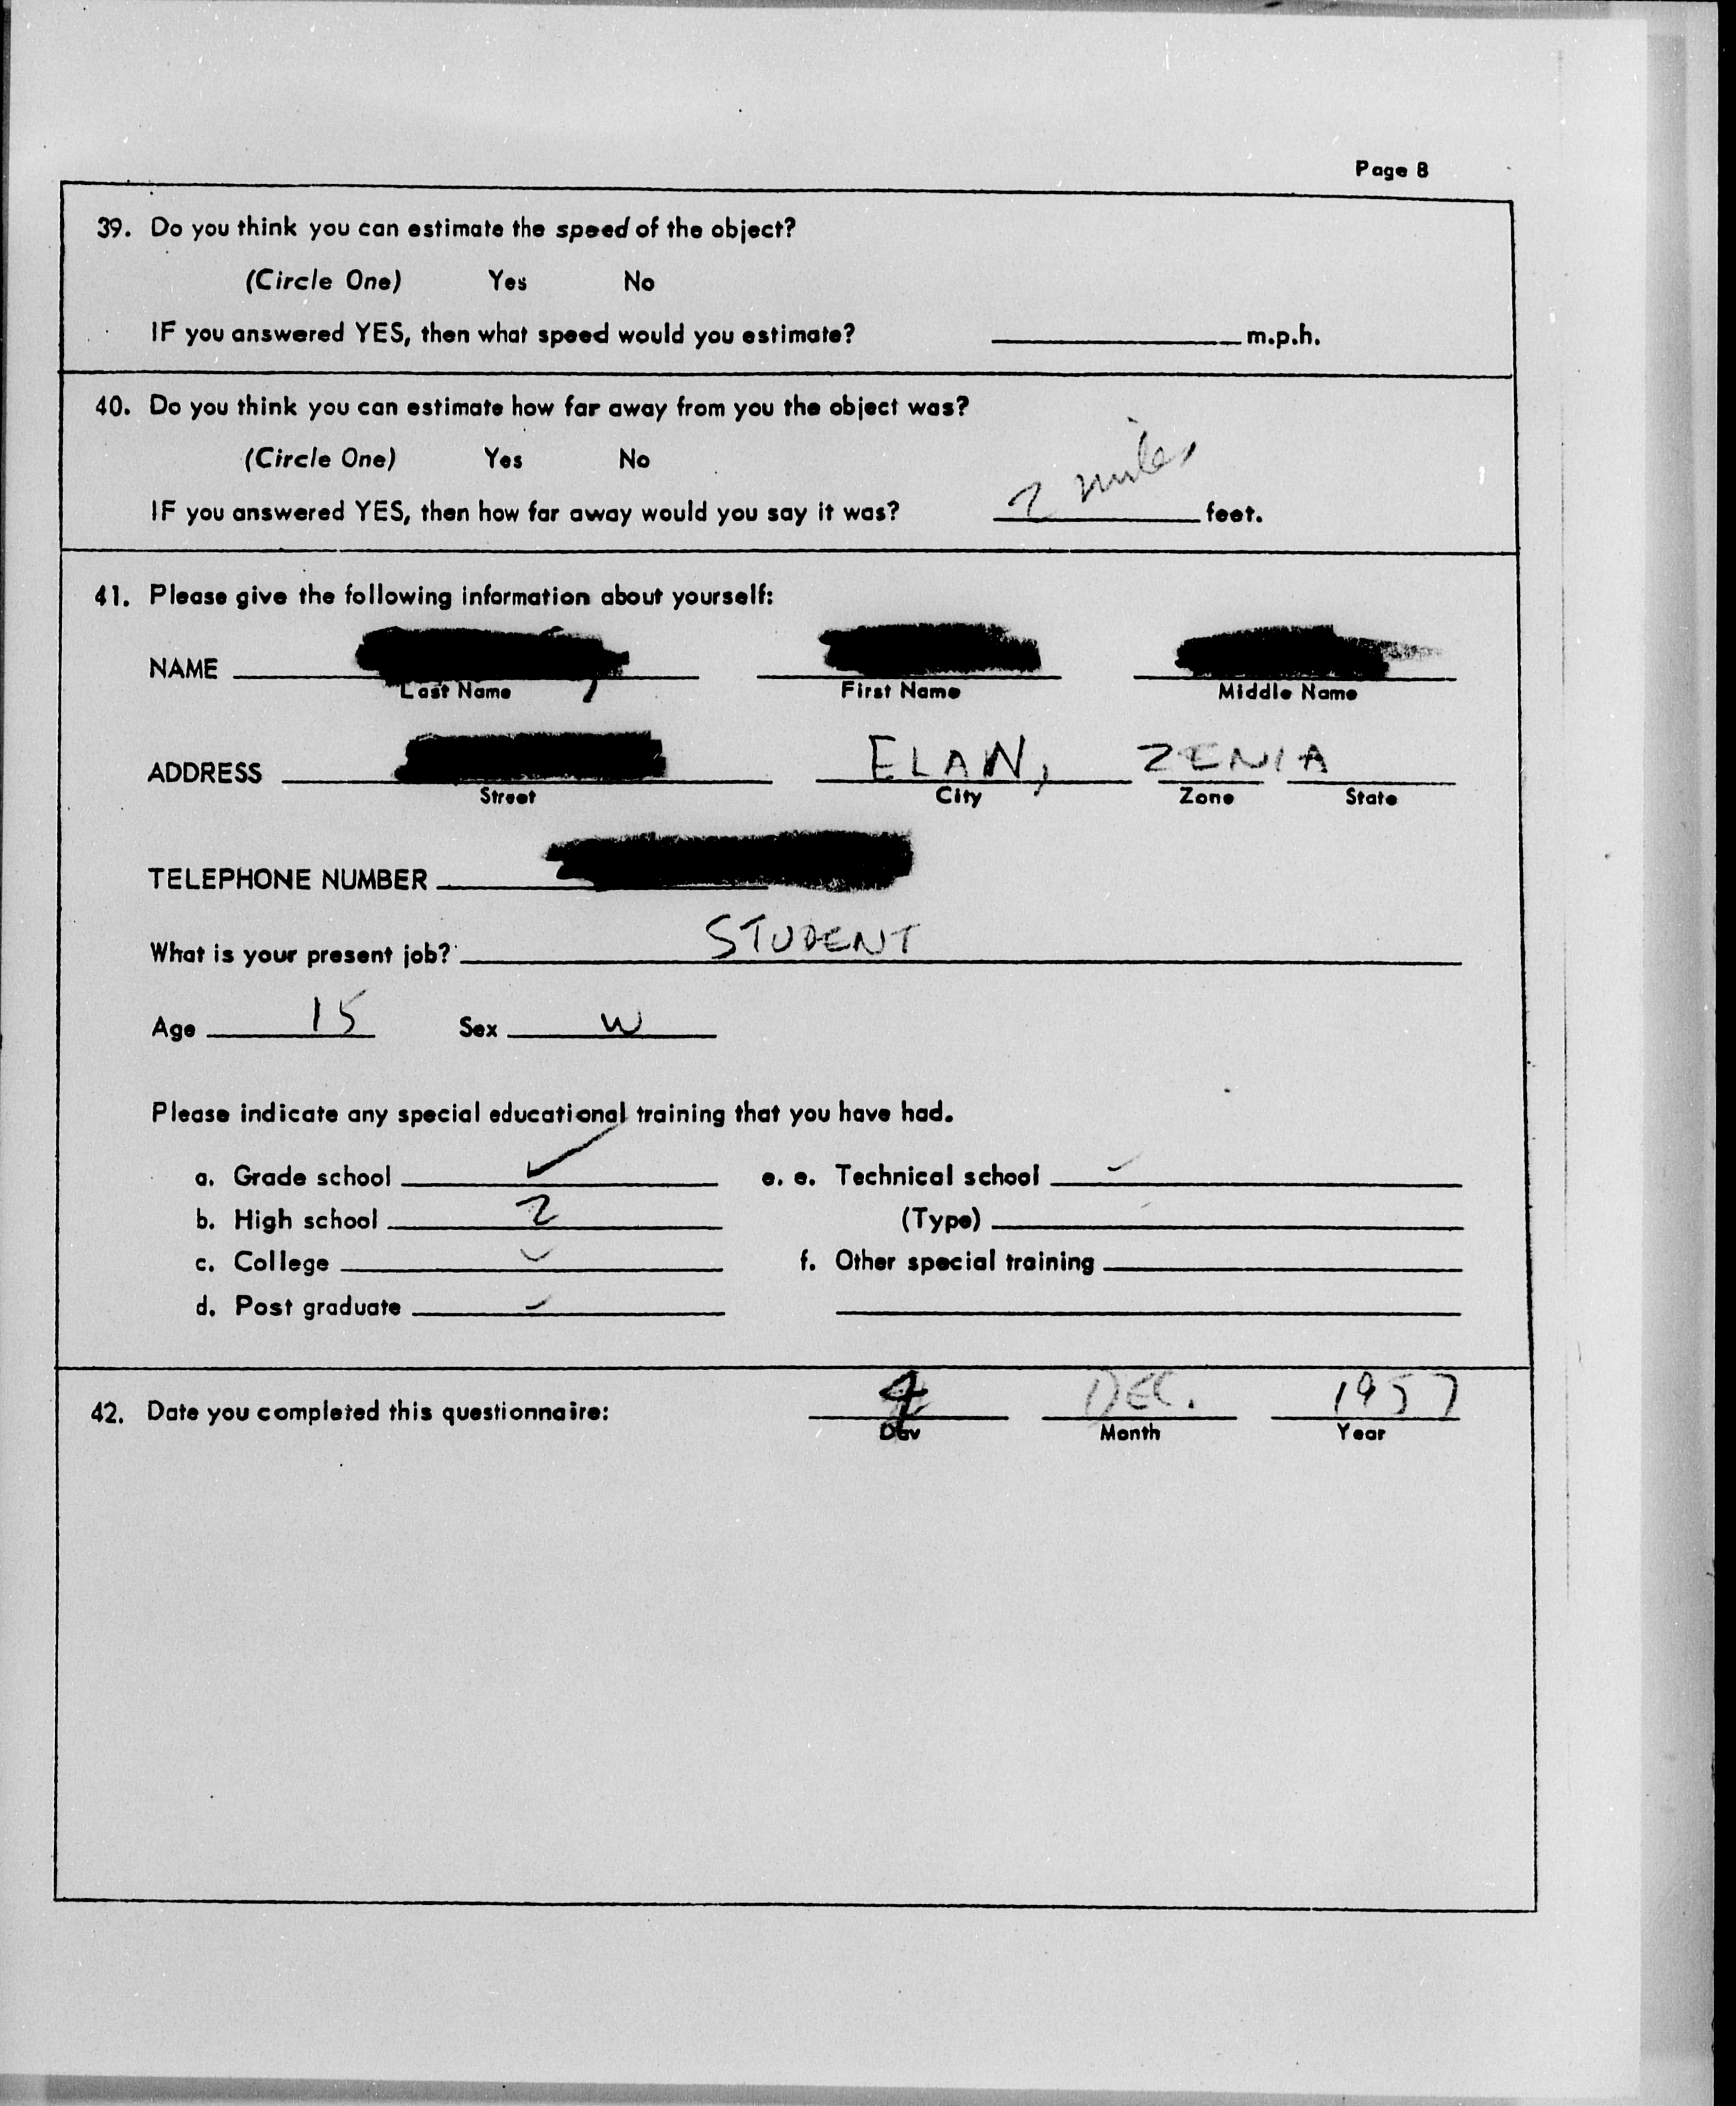 Page 8
39. Do you think you can estimate the speed of the object?
(Circle One) Yes No
IF you answered YES, then what speed would you estimate? m.p.h.
40. Do you think you can estimate how far away from you the object was?
(Circle One) Yes No
IF you answered YES, then how far away would you say it was? miles feet.
41. Please give the following information about yourself:
NAME
Last Name First Name Middle Name
ADDRESS ELAN, ZENIA
Street City Zone State
TELEPHONE NUMBER
What is your present job? STUDENT
Age 15 Sex W
Please indicate any special educational training that you have had.
a. Grade school ✓ e. e. Technical school
b. High school 2 (Type)
c. College f. Other special training
d. Post graduate
42. Date you completed this questionnaire: 4 DEC. 1957
Day Month Year